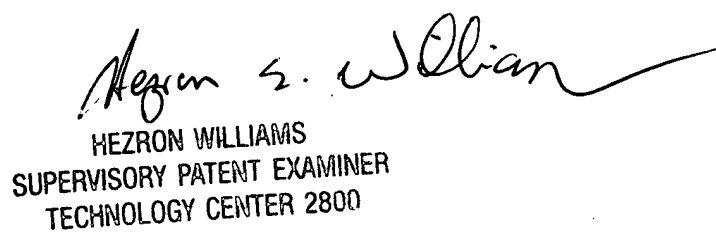 Hezron S. Williams
HEZRON WILLIAMS
SUPERVISORY PATENT EXAMINER
TECHNOLOGY CENTER 2800